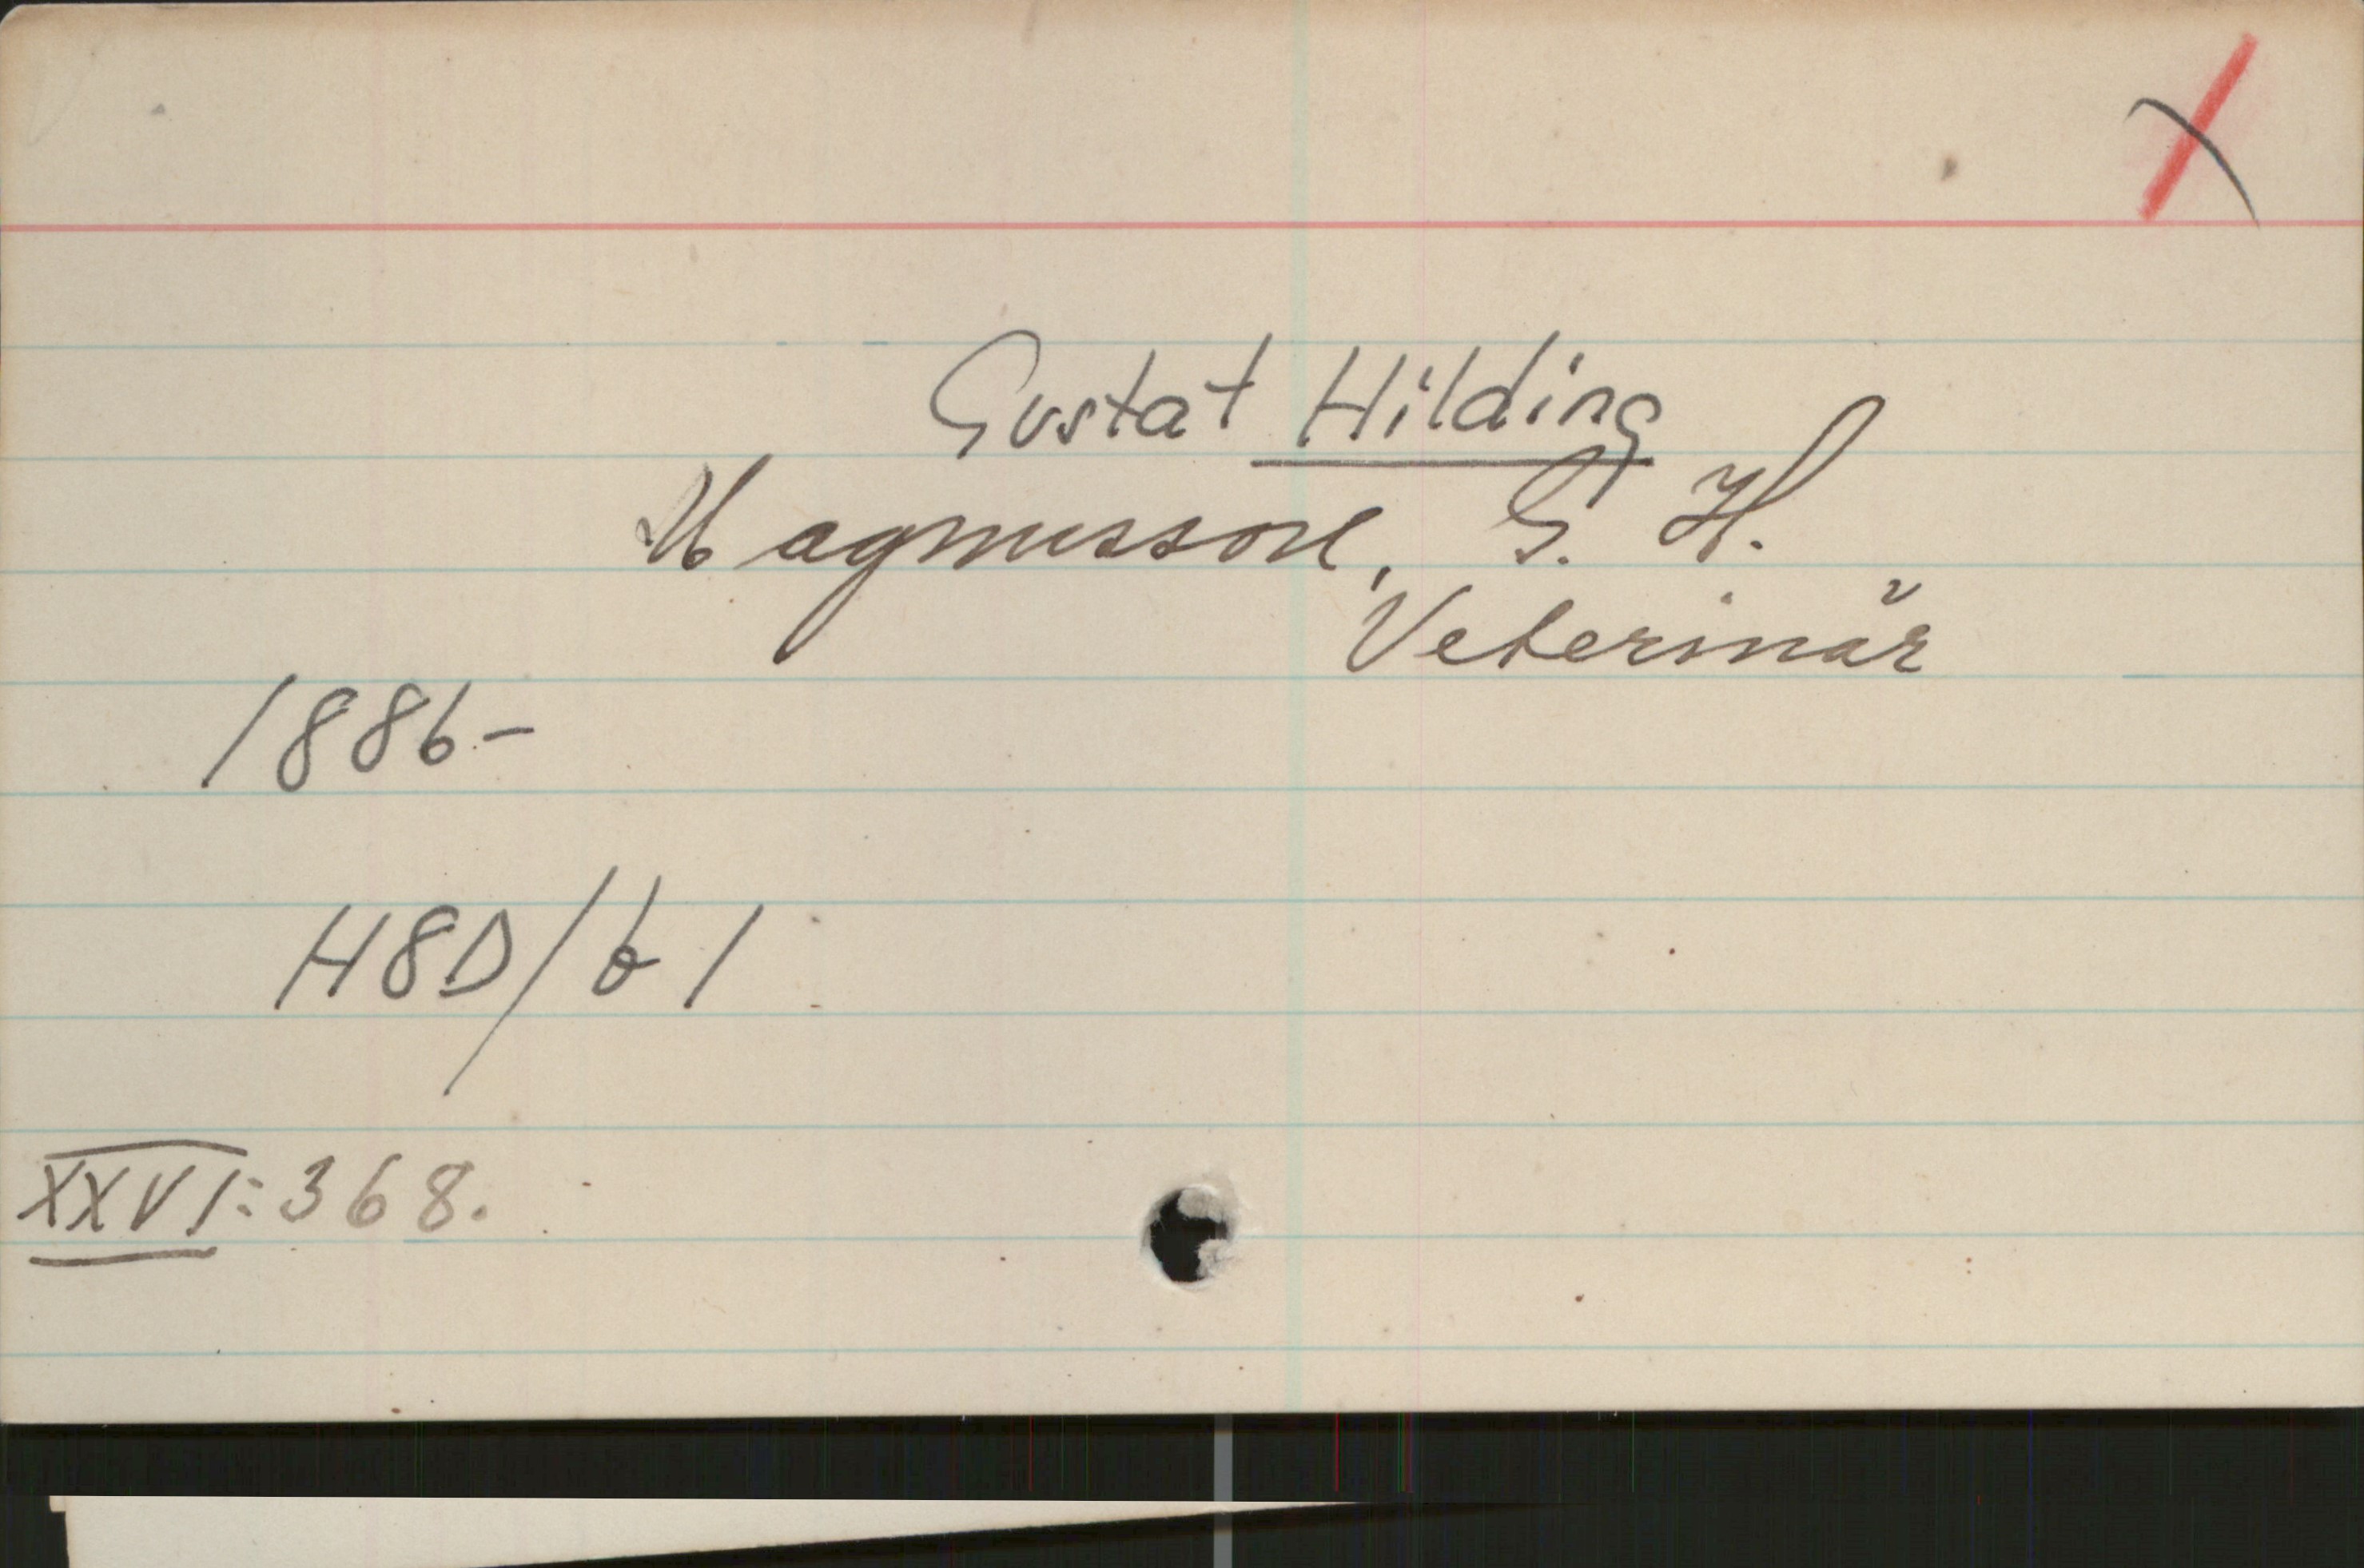 X
Gustaf Hilding
Magnusson, G. H.
Veterinär
1886-
H8D/b1
XXVI: 368.